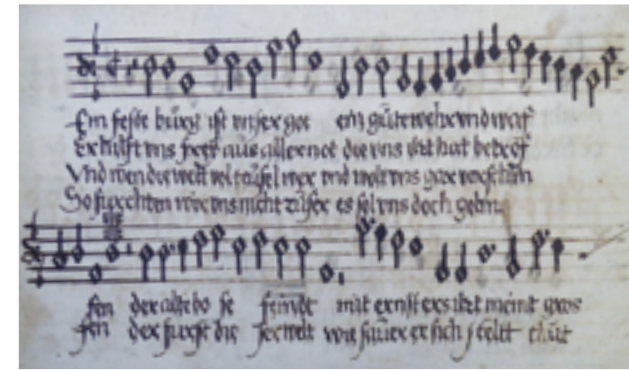 Ein feste burg ist vnser got ein gute wehr vnd waf
Er hilft vns frey aus aller not die vns itzt hat betrof
Vnd wen die welt vol teufel wer vnd wolt vns gar vorschlin
So furchten wir vns nicht zu ser es sol vns doch gelin
fen der alte bo se feindt mit ernst ers itzt meint gros
fen der furst die ser welt wie sauer er sich stellt thut